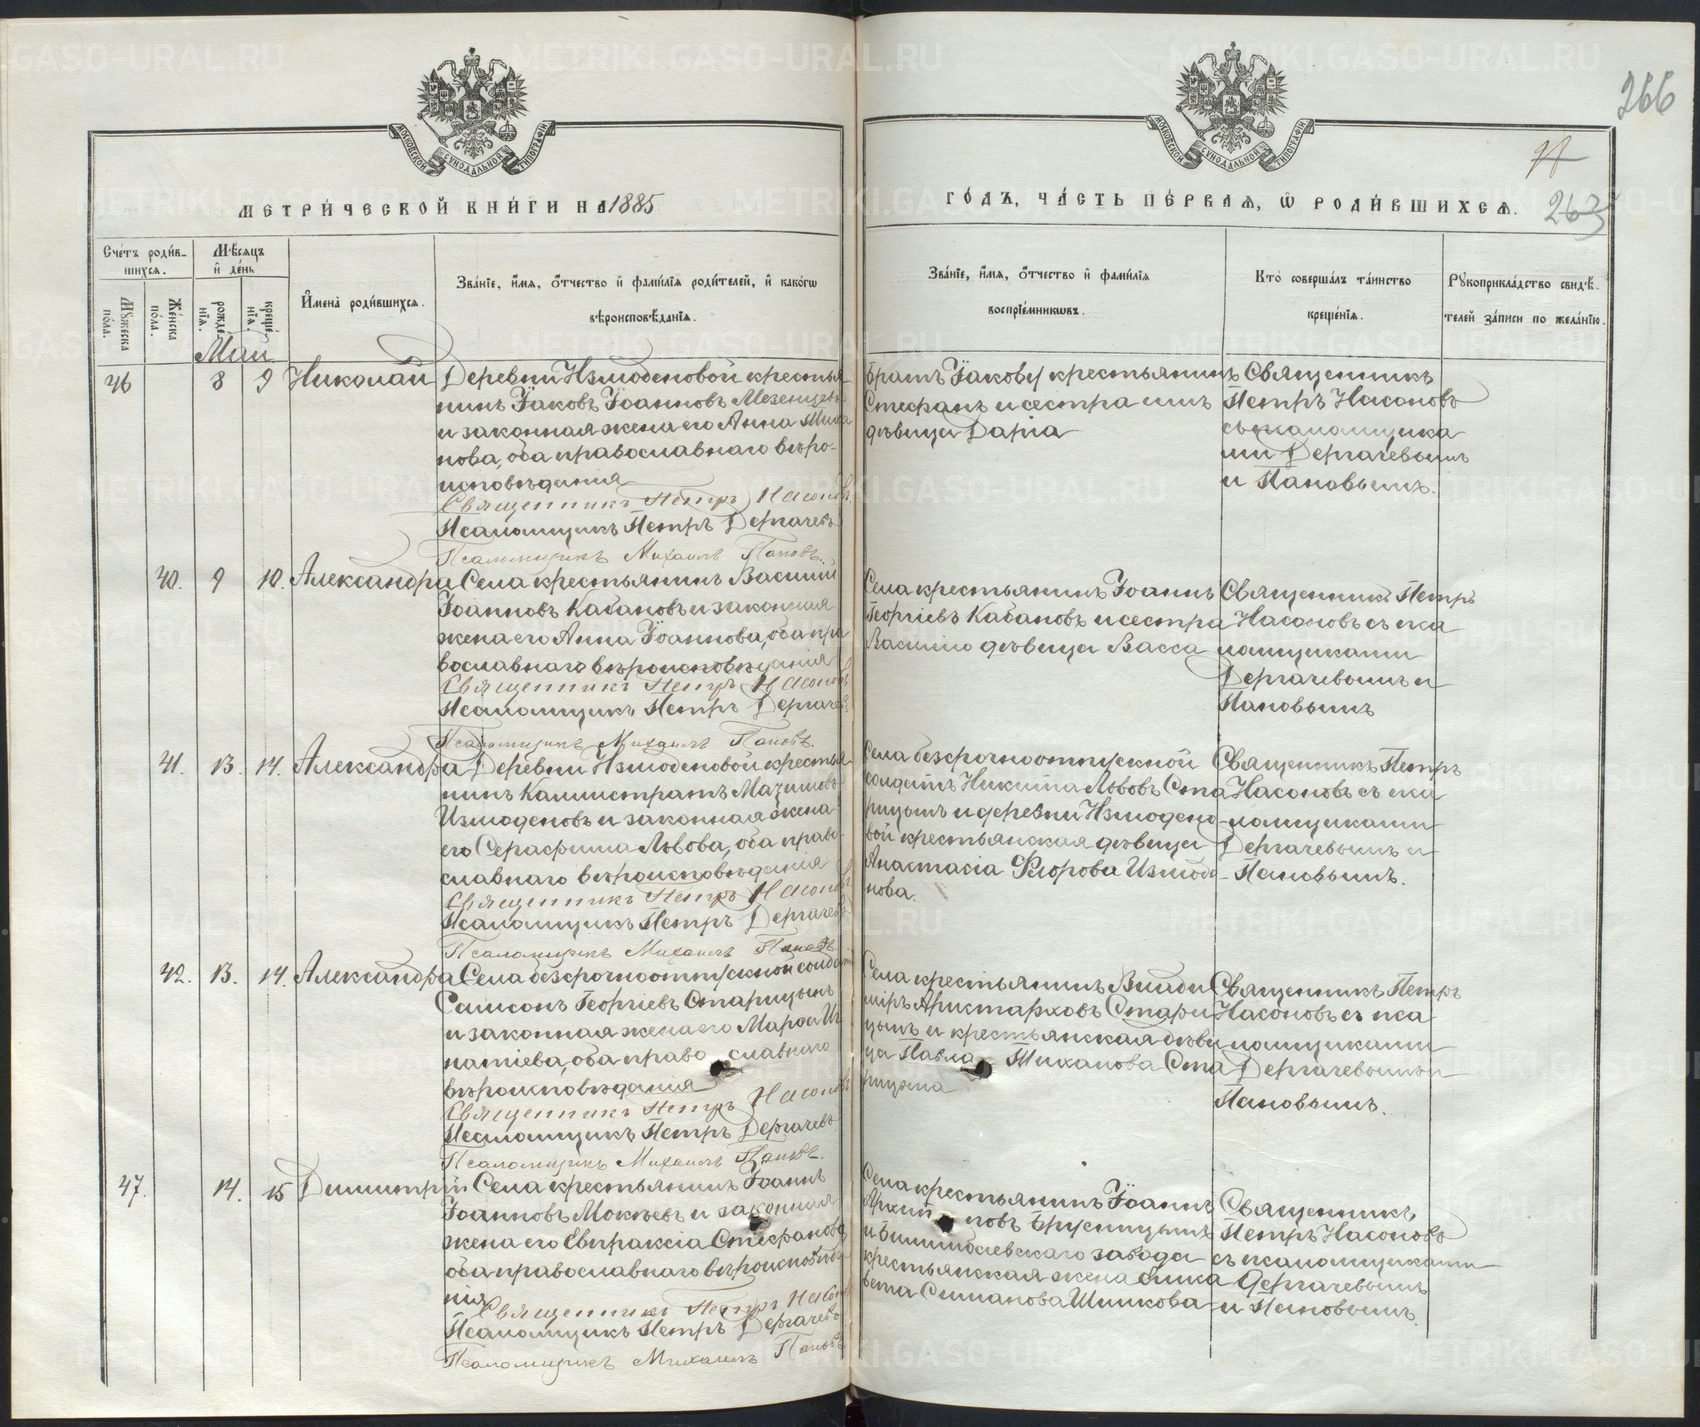 266
МЕТРИ́ЧЕСКОЙ КНИ́ГИ НА 1885
ГО́ДЪ, ЧА́СТЬ ПЕ́РВАЯ, Ѡ РОДИ́ВШИХСЯ.
263
Сче́тъ роди́в-
шихся.
Мѣ́сяцъ
и де́нь
Му́жеска по́ла.
Же́нска по́ла.
рожде́нїя.
креще́нїя.
И́мена роди́вшихся.
Зва́нїе, и́мя, о́тчество и фами́лїя роди́телей, и како́гѡ
вѣроисповѣ́данїя.
Зва́нїе, и́мя, о́тчество и фами́лїя
воспрїе́мникѡвъ.
Кто̀ соверша́лъ та́инство
креще́нїя.
Рꙋкоприкла́дство свидѣ́-
телей за́писи по жела́нїю.
Май
46 8 9 Николай
Деревни Измоденовой крестья-
нинъ Іаковъ Іоанновъ Мезенцевъ
и законная жена его Анна
нова, оба православнаго вѣро-
исповѣданія
Священникъ Петръ Насоновъ
Псаломщикъ Петръ Дергачевъ
Псаломщикъ Михаилъ Пановъ.
братъ Іакову крестьянинъ
Стефанъ и сестра имъ
дѣвица Дарія
Священникъ
Петръ Насоновъ
съ псаломщика
ми Дергачевымъ
и Пановымъ.
40. 9 10. Александра
Села крестьянинъ Василій
Іоанновъ Кабановъ и законная
жена его Анна Іоаннова, оба пра
вославнаго вѣроисповѣданія
Священникъ Петръ Насоновъ
Псаломщикъ Петръ Дергачевъ
Псаломщикъ Михаилъ Пановъ.
Села крестьянинъ Іоаннъ
Георгіевъ Кабановъ и сестра
Василію дѣвица Васса
Священникъ Петръ
Насоновъ съ пса
ломщиками
Дергачевымъ и
Пановымъ
41. 13. 14. Александра
Деревни Измоденовой крестья
нинъ Каллистратъ
Измоденовъ и законная жена
его Серафима Львова, оба право
славнаго вѣроисповѣданія
Священникъ Петръ Насоновъ
Псаломщикъ Петръ Дергачевъ
Псаломщикъ Михаилъ Пановъ.
Села безсрочноотпускной
солдатъ Никита Львовъ Ста
рицынъ и деревни Измодено
вой крестьянская дѣвица
Анастасія Флорова Измоде-
нова.
Священникъ Петръ
Насоновъ съ пса
ломщиками
Дергачевымъ и
Пановымъ.
42. 13. 14. Александра
Села безсрочноотпускной солдатъ
Самсонъ Георгіевъ Старицынъ
и законная жена его Марѳа Иг
натіева, оба право славнаго
вѣроисповѣданія
Священникъ Петръ Насоновъ
Псаломщикъ Петръ Дергачевъ
Псаломщикъ Михаилъ Пановъ.
Села крестьянинъ Влади
міръ Аристарховъ Стари
цынъ и крестьянская дѣви
ца Павла Ста
рицына
Священникъ Петръ
Насоновъ съ пса
ломщиками
Дергачевымъ и
Пановымъ.
47. 14. 15 Димитрій
Села крестьянинъ Іоаннъ
Іоанновъ Мокѣевъ и законная
жена его Евпраксія Стефанова
оба православнаго вѣроисповѣда
нія
Священникъ Петръ Насоновъ
Псаломщикъ Петръ Дергачевъ
Псаломщикъ Михаилъ Пановъ
Села крестьянинъ Іоаннъ
Архип повъ Брусницынъ
и Билимбаевскаго завода
крестьянская жена Елиса
вета Симанова Шишкова
Священникъ
Петръ Насоновъ
съ псаломщиками
Дергачевымъ
и Пановымъ.